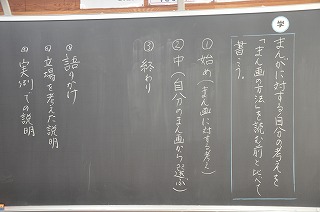 学
まんがに対する自分の考えを
「まんがの方法」を読む前と比べて
書こう。
① 始め(まん画に対する考え)
② 中(自分のまん画から選ぶ)
③ 終わり
㋐ 語りかけ
㋑ 立場を考えた説明
㋒ 実例での説明